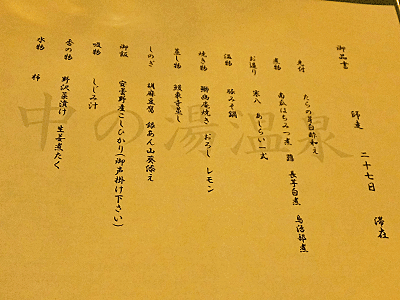 御品書
師走 二十七日 滞在
先付 たらの芽白酢和え
煮物 南瓜はちみつ煮 鶏 長芋白煮
お造り 寒八 あしらい一式
温物 豚みそ鍋
焼き物 鰤幽庵焼き おろし レモン
蒸し物 饅東寺蒸し
しのぎ 胡麻豆腐 銀あん山葵添え
御飯 安曇野産こしひかり(御声掛け下さい)
吸物 しじみ汁
香の物 野沢菜漬け 生姜煮たく
水物 柿
中の湯温泉